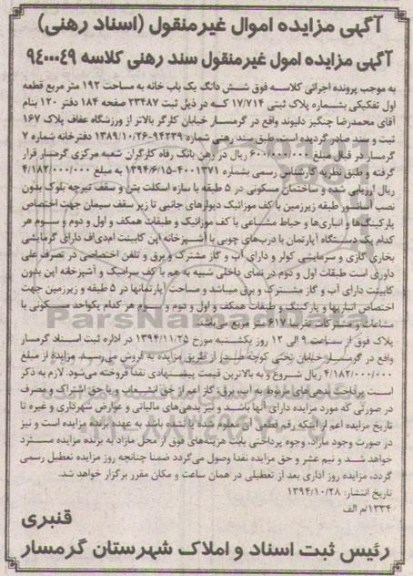 آگهی مزایده اموال غیرمنقول (اسناد رهنی)
آگهی مزایده امول غیرمنقول سند رهنی کلاسه ۹۴۰۰۰۴۹
به موجب پرونده اجرائی کلاسه فوق شش دانگ یک باب خانه به مساحت ۱۹۲ متر مربع قطعه
اول تفکیکی بشماره پلاک ثبتی ۱۷/۷۱۴ که در ذیل ثبت ۲۳۴۸۷ صفحه ۱۸۴ دفتر ۱۲۰ بنام
آقای محمدرضا چنگیز دلیوند واقع در گرمسار خیابان کارگر بالاتر از ورزشگاه عفاف پلاک ۱۶۷
ثبت و سند صادر گردیده است، طبق سند رهنی شماره ۹۴۲۳۹-۱۳۸۹/۱۰/۲۶ دفترخانه شماره ۷
گرمسار در قبال مبلغ ۶۰۰/۰۰۰/۰۰۰ ریال در رهن بانک رفاه کارگران شعبه مرکزی گرمسار قرار
گرفته و طبق نظریه کارشناس رسمی بشماره ۴۰۰۱۳۷۱-۱۳۹۴/۶/۱۵ به مبلغ ۴/۱۸۲/۰۰۰/۰۰۰
ریال ارزیابی شده و ساختمان مسکونی در ۵ طبقه با سازه اسکلت بتن و سقف تیرچه بلوک بدون
نصب آسانسور طبقه زیرزمین با کف موزائیک دیوارهای جانبی تا زیر سقف سیمان جهت اختصاص
پارکینگ‌ها و انباری‌ها و حیاط مشاعی با کف موزائیک و طبقات همکف و اول و دوم و سوم هر
کدام یک دستگاه آپارتمان با درب‌های چوبی با آشپزخانه اپن کابینت ام‌دی‌اف دارای گرمایشی
بخاری گازی و سرمایشی کولر و دارای آب و گاز مشترک و برق و تلفن اختصاصی در تصرف علی
داوری است طبقات اول و دوم در نمای داخلی شبیه به هم با کف سرامیک و آشپزخانه اپن بدون
کابینت دارای آب و گاز مشترک و برق میباشد و مساحت آپارتمانها در ۵ طبقه و زیرزمین جهت
اختصاص انباریها و پارکینگ و طبقات همکف و اول و دوم و سوم هر کدام یکواحد مسکونی با
مشاعات و مشترکات تقریبا ۶۱۷ متر مربع می‌باشد
پلاک فوق از ساعت ۹ الی ۱۲ روز یکشنبه مورخ ۱۳۹۴/۱۱/۲۵ در اداره ثبت اسناد گرمسار
واقع در گرمسار خیابان تختی کوچه از طریق مزایده به فروش می‌رسد. مزایده از مبلغ
۴/۱۸۲/۰۰۰/۰۰۰ ریال شروع و به بالاترین قیمت پیشنهادی نقدا فروخته می‌شود. لازم به ذکر
است پرداخت بدهی‌های مربوط به آب، برق، گاز اعم از حق انشعاب و یا حق اشتراک و مصرف
در صورتی که مورد مزایده دارای آنها باشد و نیز بدهی‌های مالیاتی و عوارض شهرداری و غیره تا
تاریخ مزایده اعم از اینکه رقم قطعی آن معلوم شده یا نشده باشد به عهده برنده مزایده است و نیز
در صورت وجود مازاد، وجوه پرداختی بابت هزینه‌های فوق از محل مازاد به برنده مزایده مسترد
خواهد شد و نیم عشر و حق مزایده نقدا وصول می‌گردد ضمنا چنانچه روز مزایده تعطیل رسمی
گردد، مزایده روز اداری بعد از تعطیلی در همان ساعت و مکان مقرر برگزار خواهد شد.
تاریخ انتشار: ۱۳۹۴/۱۰/۲۸
۱۳۳۴/م الف
قنبری
رئیس ثبت اسناد و املاک شهرستان گرمسار
ParsNamadData